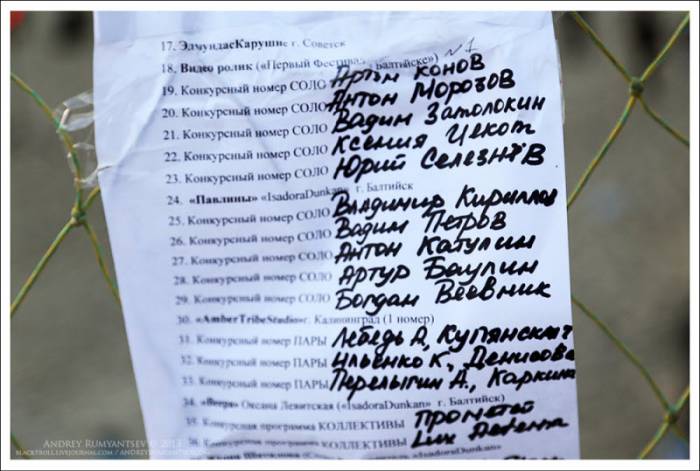 17. ЭдмундасКарушис г. Советск
18. Видео ролик («Первый Фестиваль Балтийске») №1
19. Конкурсный номер СОЛО Артём Конов
20. Конкурсный номер СОЛО Антон Морозов
21. Конкурсный номер СОЛО Вадим Затолокин
22. Конкурсный номер СОЛО Ксения Чекот
23. Конкурсный номер СОЛО Юрий Селезнёв
24. «Павлины» «IsadoraDunkan» г. Балтийск
25. Конкурсный номер СОЛО Владимир Кириллов
26. Конкурсный номер СОЛО Вадим Петров
27. Конкурсный номер СОЛО Антон Катулин
28. Конкурсный номер СОЛО Артур Баулин
29. Конкурсный номер СОЛО Богдан Веевник
30. «AmberTribeStudio»г. Калининград (1 номер)
31. Конкурсный номер ПАРЫ Лебедь А, Купянская
32. Конкурсный номер ПАРЫ Ильенко К., Денисова
33. Конкурсный номер ПАРЫ Перелыгин А., Каркина
34. «Веера» Оксана Левитская («IsadoraDunkan» г. Балтийск)
35. Конкурсная программа КОЛЛЕКТИВЫ Прометей
36. Конкурсная программа КОЛЛЕКТИВЫ Lux Aeterna
ANDREY RUMYANTSEV © 2013
BLACKTROLL.LIVEJOURNAL.COM